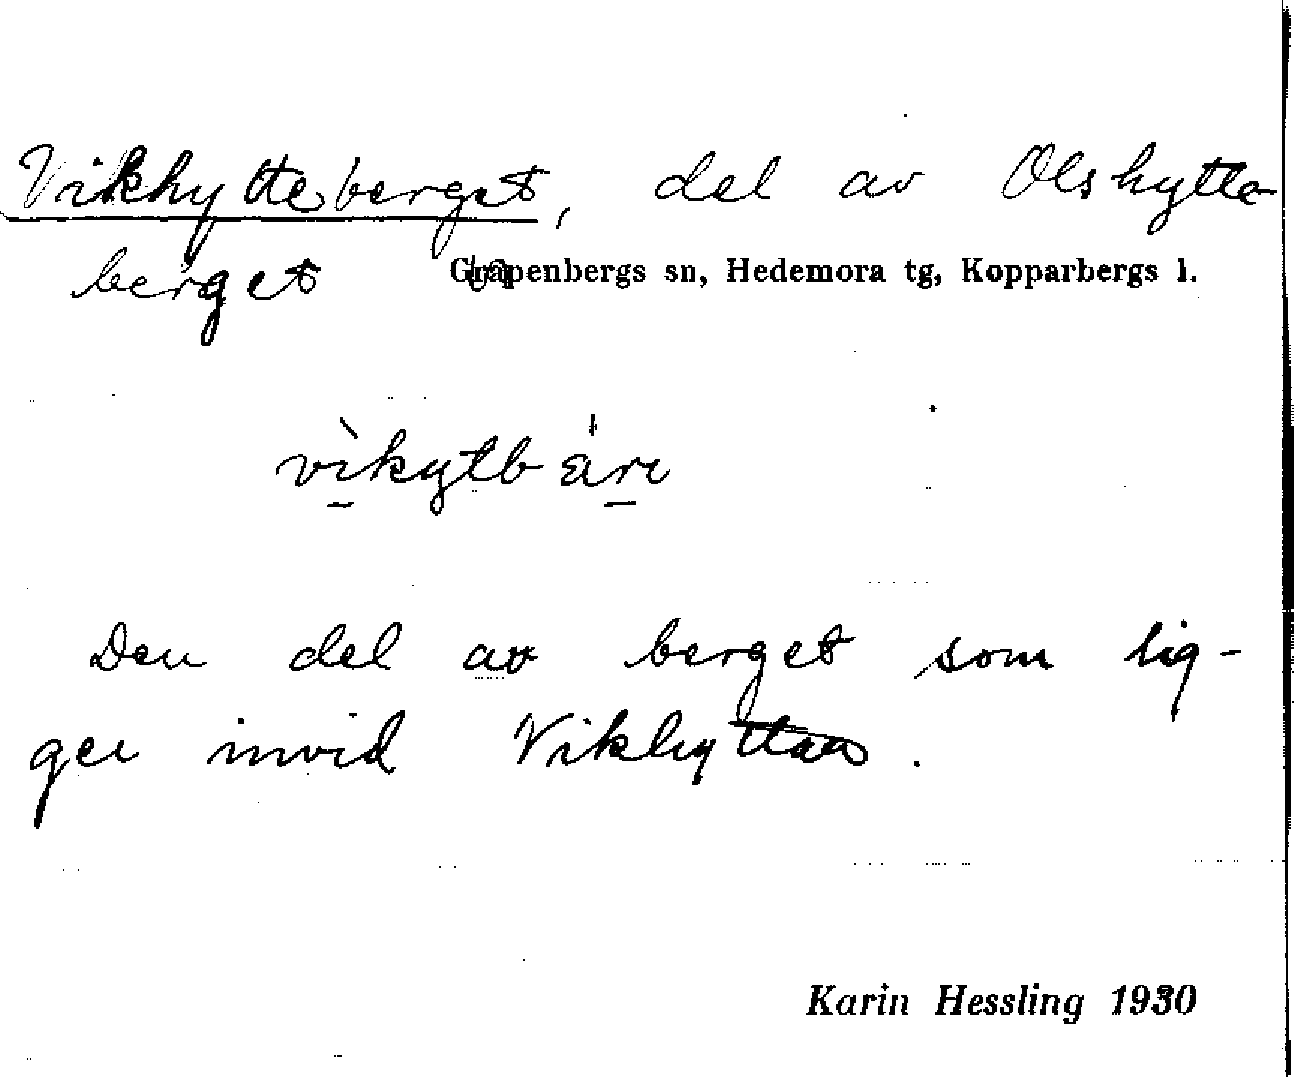 Vikhytteberget, del av Olshytte-
berget Garpenbergs sn, Hedemora tg, Kopparbergs l.
vìkytbä̀rı
Den del av berget som lig-
ger invid Vikhyttan.
Karin Hessling 1930